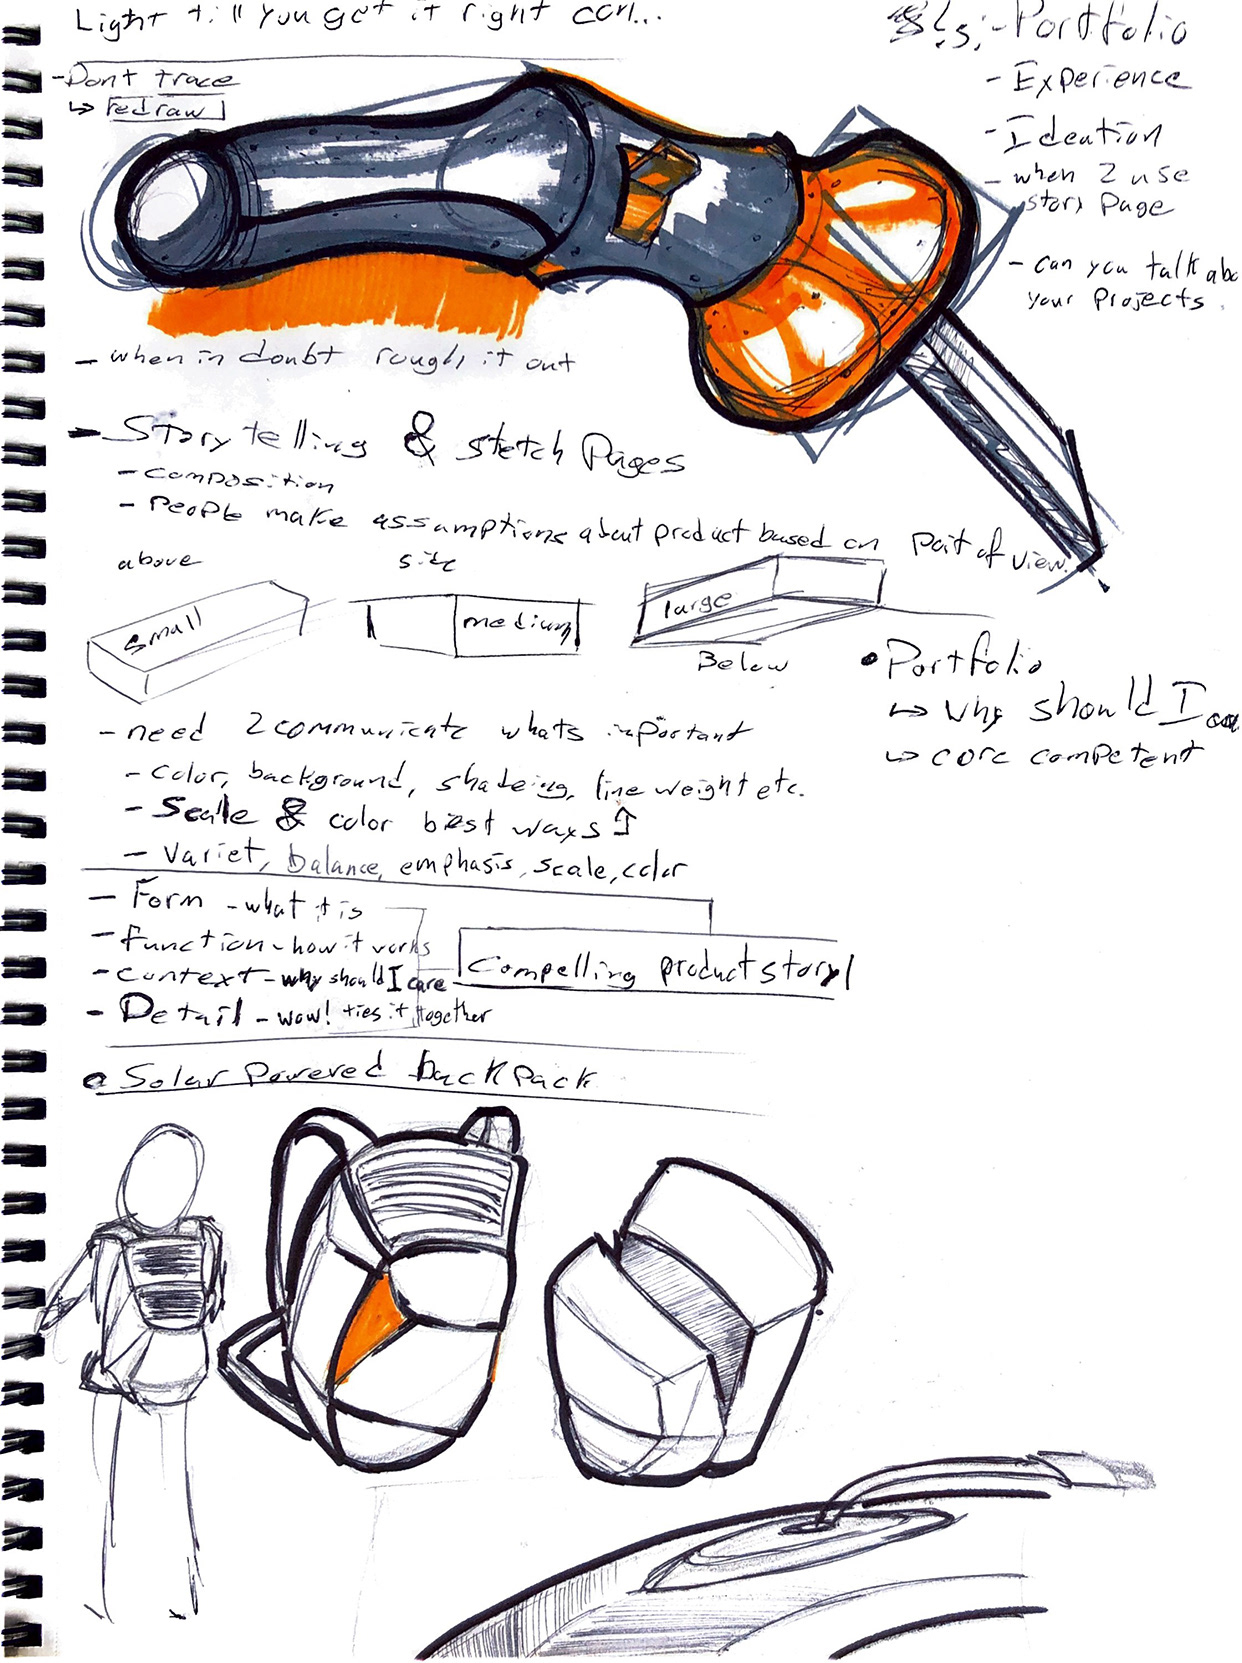 Light till you get it right
- Portfolio
- Dont trace
↳ redraw
- Experience
- Ideation
- when 2 use
story Page
- can you talk abo
your Projects.
- when in doubt rough it out
- Story telling & sketch Pages
- composition
- People make assumptions about product based on Poit of view.
above
side
small
medium
large
Below
• Portfolio
↳ Why should I
↳ core competent
- need 2 communicate whats important
- color, background, shadeing, line weight etc.
- Scale & color best ways ↑
- Variet, balance, emphasis, scale, color
- Form - what it is
- function - how it works
- context - why should I care
- Detail - wow! ties it together
Compelling product story
• Solar Powered backpack